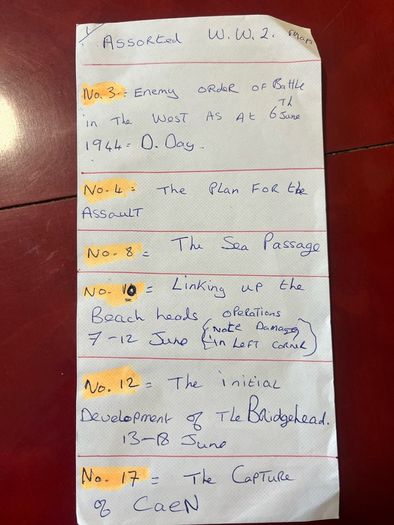 Assorted W.W.2. Maps
No. 3 = Enemy order of Battle
in The West As At 6th June
1944 = D. Day.
No. 4 = The Plan For the
Assault
No. 8 = The Sea Passage
No. 10 = Linking up the
Beach heads operations
7-12 June (Note Damage
in Left corner)
No. 12 = The initial
Development of The Bridgehead.
13-18 June
No. 17 = The Capture
of Caen